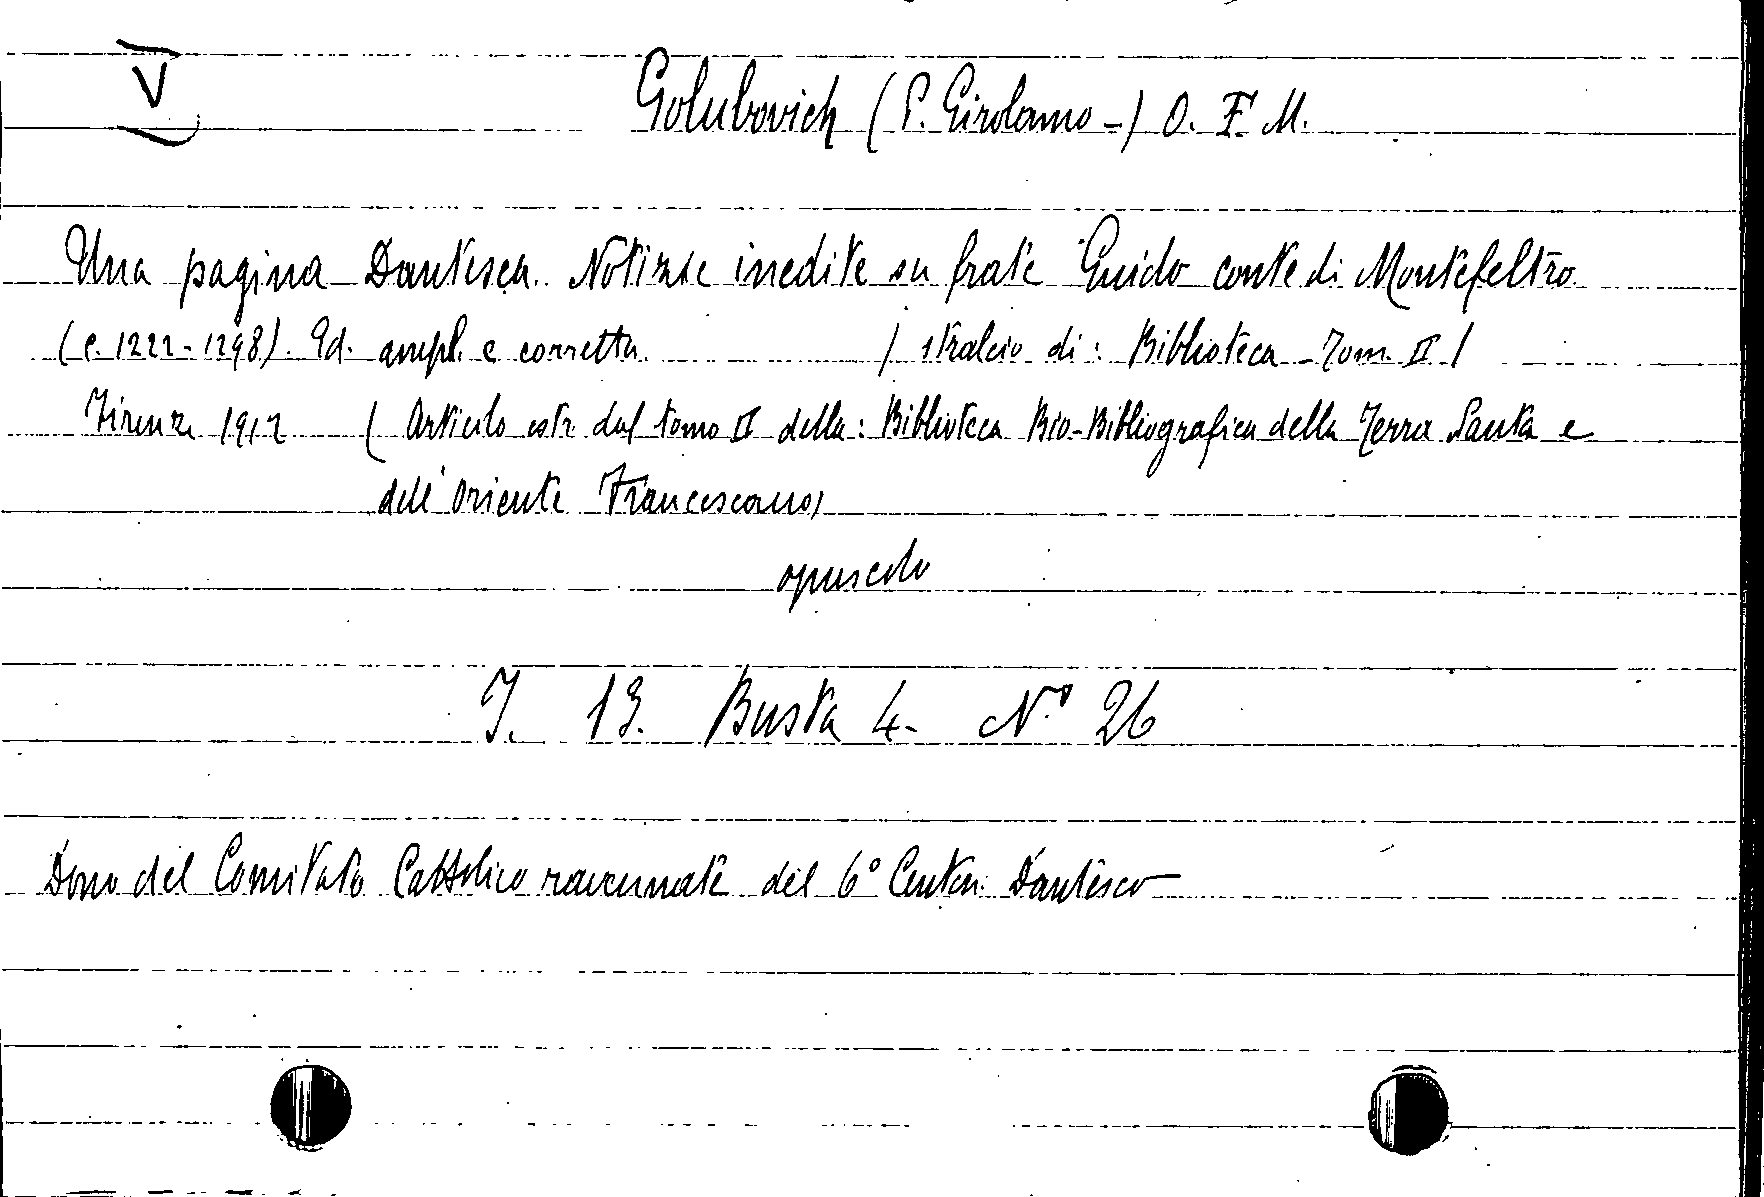 V
Golubovich (P. Girolamo -) O. F. M.
Una pagina Dantesca. Notizie inedite su frate Guido conte di Montefeltro
(c. 1222-1298). Ed. ampl. e corretta. / stralcio di: Biblioteca - Tom. II /
Firenze 1912 ( Articolo estr. dal tomo II della: Biblioteca Bio-Bibliografica della Terra Santa e
dell'Oriente Francescano)
opuscolo
I. 13. Busta 4. N.° 26
Dono del Comitato Cattolico ravennate del 6° Centen. Dantesco